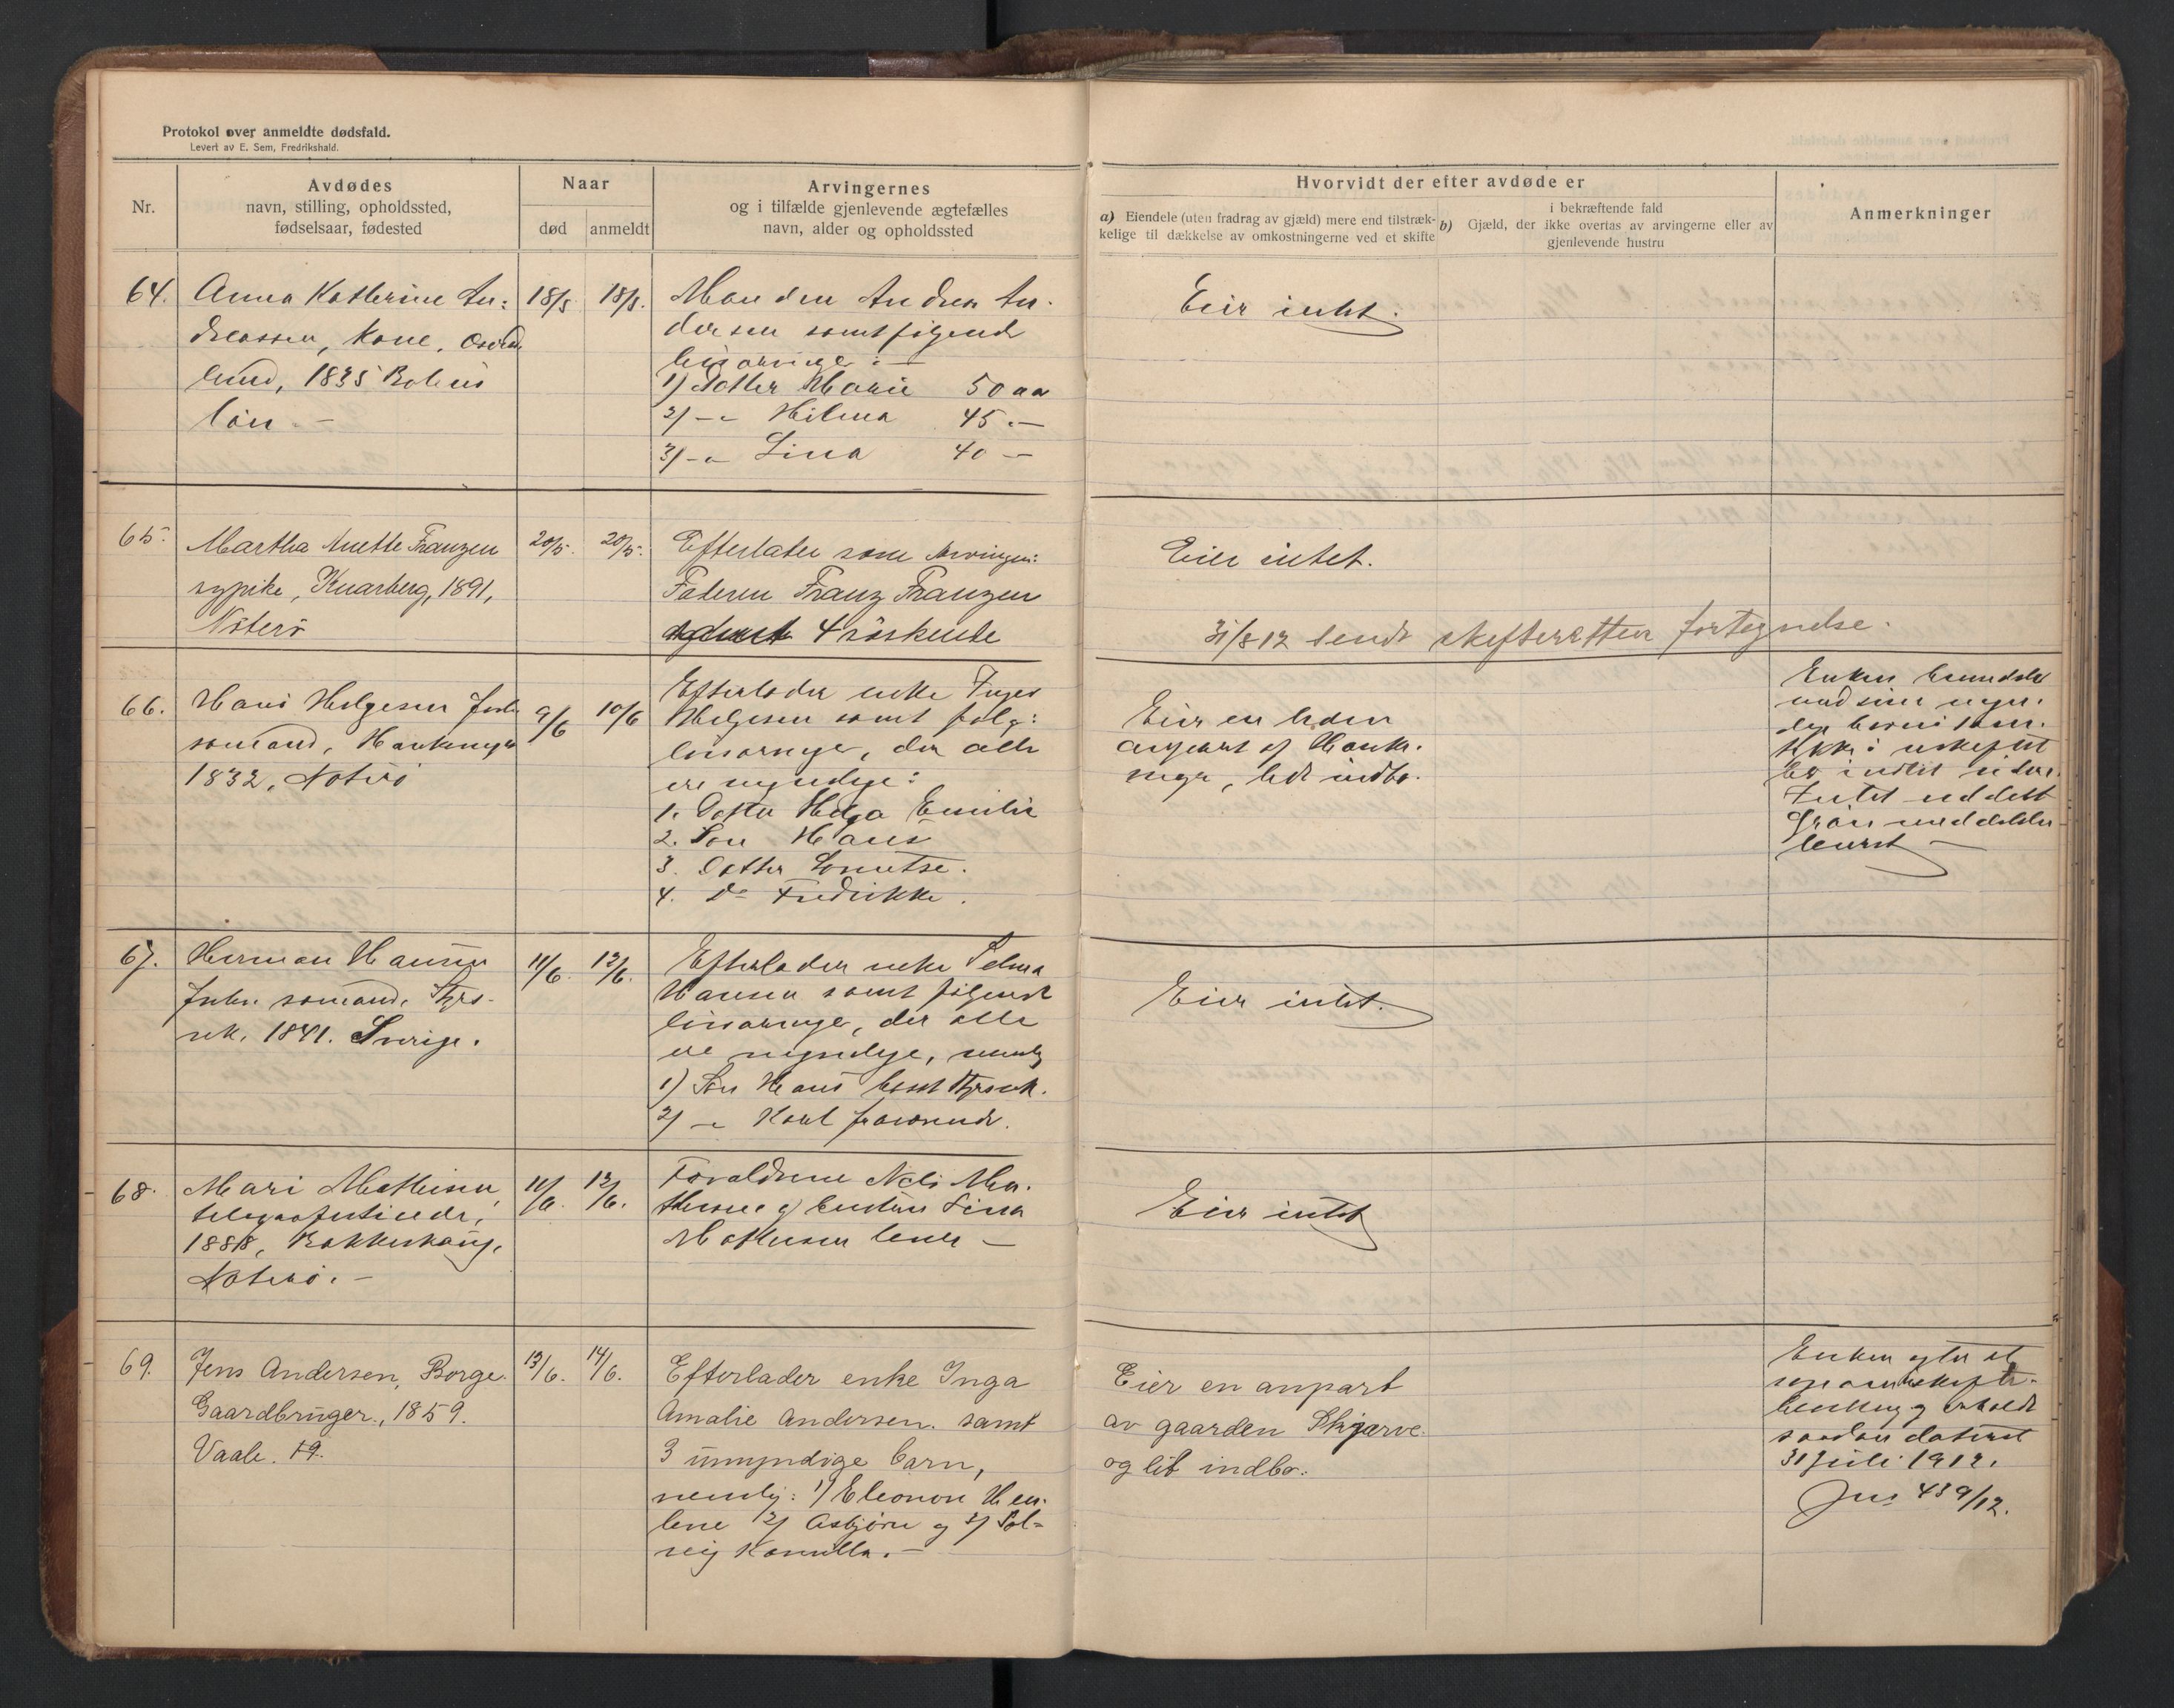 Protokol over anmeldte dødsfald.
Levert av E. Sem, Fredrikshald.
Nr.
Avdødes
navn, stilling, opholdssted,
fødselsaar, fødested
Naar
død
anmeldt
Arvingernes
og i tilfælde gjenlevende ægtefælles
navn, alder og opholdssted
Hvorvidt der efter avdøde er
a) Eiendele (uten fradrag av gjæld) mere end tilstræk-
kelige til dækkelse av omkostningerne ved et skifte
i bekræftende fald
b) Gjæld, der ikke overtas av arvingerne eller av
gjenlevende hustru
Anmerkninger
64.
Anna Katherine An-
dreassen, kone,
lund, 1835 Bohus
län. -
18/5
18/5.
Manden Andreas An-
dersen samt følgende
livsarvinge: -
1) Datter Marie 50 aa
2) -"- Hilma 45 . -
3) -"- Lina 40 -
Eier intet.
65.
Martha Anette Franzen
sypike, Knarberg, 1891,
Nøterø
20/5.
20/5.
Efterlater som Arvinger:
Faderen Franz Franzen
4 søskende
Eier intet.
31/8 12 sendt skifteretten fortegnelse.
66.
Hans Helgesen forh.
sømand,
1832, Nøterø
9/6
10/6
Efterlader enke Inger
Helgesen samt følg:
livsarvinge, der alle
ere myndige:
1. Datter Helga Emilie
2. Søn Hans
3. Datter
4. Do Fredrikke.
Eier en liden
anpart af
lidt indbo.
Enken
med sine myn-
dige børns sam-
tykke i uskiftet
bo
67.
Herman Hansen
Forh. sømand,
1841. Sverige.
11/6.
12/6.
Efterlader enke Selma
Hansen samt følgende
livsarvinge, der alle
ere myndige, nemlig
1) Søn Hans bosat
2) -"- Karl fraværende.
Eier intet.
68.
Mari Mathisen
1888, Bakkeskaug,
Nøterø. -
11/6.
12/6.
Forældrene Nels Ma-
thisen og hustru Lina
Mathisen lever -
Eier intet
69.
Jens Andersen, Borge.
Gaardbruger, 1859.
Vaale.
13/6.
14/6.
Efterlader enke Inga
Amalie Andersen. samt
3 umyndige barn,
nemlig: 1) Eleonore Hen-
lene 2) Asbjørn og 3) Sol-
veig Kamilla. -
Eier en anpart
av gaarden Skjærve
og lit indbo.
Enken agter at
31 juli 1912.
Jur 439/12.